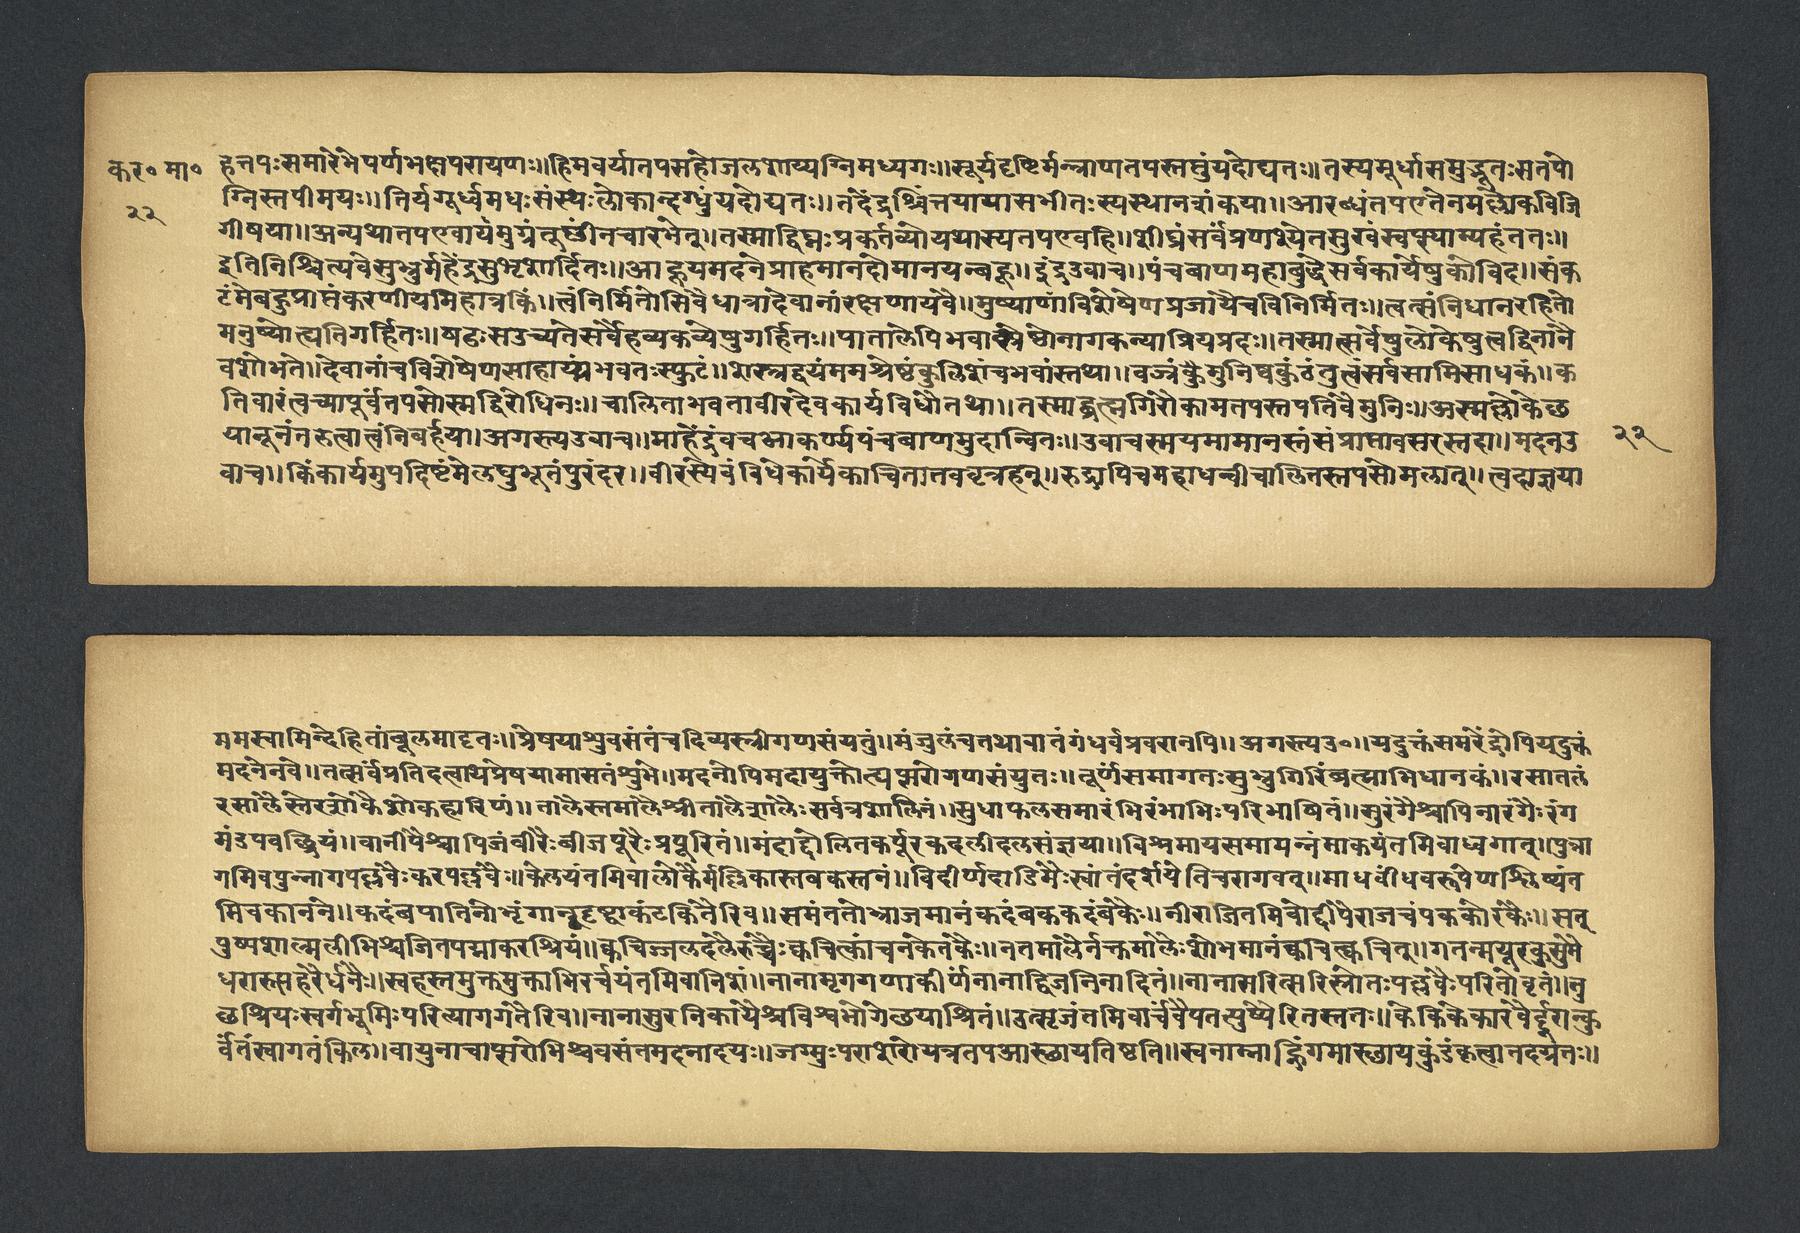 कर॰ मा॰
२२
हत्तपःसमारेभेपर्णभक्षपरायणः॥हिमवर्षातपसहोजलशाय्यग्निमध्यगः॥सूर्यदृष्टिर्मन्त्राणतपस्तप्तुंयदोद्यतः॥तस्यमूर्धासमुद्भूतःसतपो
ग्निस्तपोमयः॥तिर्यगूर्ध्वमधःसंस्थःलोकान्दग्धुंयदोद्यतः॥तदेंद्रश्चिंतयायासभीतःस्यस्थानशंकया॥आरब्धंतपएतेनमल्लोकविजि
गीषया॥अन्यथातपएवायंमुग्रंतूष्णींनचारभेत्॥तस्माद्विघ्नःप्रकर्तव्योयथास्यतपएवहि॥शीघ्रंसर्वंप्रणश्येतसुखंस्वप्स्याम्यहंततः॥
इतिनिश्चित्यवैसुभ्रुर्महेंद्रसुभृशार्दितः॥आहूयमदनंप्राहमानदोमानयन्बहू॥इंद्रउवाच॥पंचबाणमहाबुद्धेसर्वकार्येषुकोविद॥संक
टंमेबहुप्राप्तंकरणीयमिहात्रकिं॥त्वंनिर्मितोसिवैधात्रादेवानांरक्षणायवै॥मुष्याणांविशेषेणप्रजायैचविनिर्मितः॥त्वत्संनिधानरहितो
मनुष्योत्पतिगर्हितः॥षढःसउच्यतेसर्वैहव्यकव्येषुगर्हितः॥पातालेपिभवान्श्रेष्ठोनागकन्याप्रियप्रदः॥तस्मात्सर्वेषुलोकेषुत्वद्विनानै
वशोभते॥देवानांचविशेषेणसाहाय्यंभवतःस्फुटं॥शस्त्रद्वयंममश्रेष्ठंकुलिशंचभवांस्तथा॥वज्रंक्रैमुनिषुकुंठंतुत्वंसर्वसामिसाधकं॥क
तिवारंत्वच्यापूर्वंतपसोस्मद्विरोधिनः॥चालिताभवतावीरदेवकार्यविधौतथा॥तस्माद्वत्मगिरौकामतपस्तपतिवैमुनिः॥अस्मल्लोकेछ
यानूनंतरुत्वात्वंनिबर्हया॥अगस्त्यउवाच॥माहेंद्रंवचआकर्ण्यपंचबाणमुदान्वितः॥उवाचस्मयमामानस्तंसंप्राप्तावसरस्तदा॥मदनउ
२२
वाच॥किंकार्यमुपदिष्टंमेलघुभूतंपुरंदर॥वीरस्यैवंविधेकार्येकाचितातववृत्रहन्॥रुद्रापिचमहाधन्वीचालितस्तपसोमलात्॥त्वदाज्ञया
ममस्वामिन्देहितांबूलमादृतः॥प्रेषयाशुवसंतंचदिव्यस्त्रीगणसंयतुं॥मंजुलंचतथावातंगंधर्वप्रवरानपि॥अगस्त्यउ॰॥यदुक्तंसमरेंद्रोपियदुक्तं
मदनेनवै॥तत्सर्वंप्रतिदत्वाथप्रेषयामासतंशुभे॥मदनोपिमदायुक्तोत्प्यप्सरोगणसंयुतः॥तूर्णंसमागतःसुभ्रुगिरिंवत्माभिधानकं॥रसातलं
रसालैस्तैरशोकैशोकहारिणं॥तालैस्तमालैश्रीतालैशालैःसर्वत्रशालिनं॥सुधाफलसमारंभिरंभाभिःपरिभाषितं॥सुरंगैश्चापिनारंगैःरंग
मंडपवच्छ्रियं॥वानीरैश्चापिजंबीरैःबीजपूरैःप्रपूरितं॥मंदांदोलितकर्पूरकदलीदलसंज्ञया॥विश्रमायसमायन्नंमाकयंतमिवाध्वगान्॥पुन्ना
गमिवपुन्नागपल्लवैःकरपल्लवैः॥कलयंतमिवालोकैर्मल्लिकास्तबकस्तनं॥विदीर्णदाडिमैःस्वांतंदर्शयेनिचरागवत्॥माधवींधवरूपेणश्लिष्यंत
मिवकानने॥कदंबपातिनोभृंगान्दृष्ट्वाकंटकितैरिव॥समंततोभ्राजमानंकदंबककदंबकैः॥नीराजितमिवोद्दीपैराजचंपककोरकैः॥सत्
पुष्पशाल्मलीभिश्चजितपद्माकरश्रियं॥क्वचिज्जलदलैरुच्चैःक्वचित्कांचनकेतकैः॥नतमालैर्नक्तमालैःशोभमानंक्वचित्क्वचित्॥गतन्मधूरकुसुमे
धरारूपहरैर्धनैः॥स्वहस्तमुक्तमुक्ताभिरर्चयंतमिवानिशं॥नानामृगगणाकीर्णंनानाद्विजनिनादितं॥नानासरित्सरिस्त्रोतःपल्लवैःपरितोवृतं॥तु
छश्रियःस्वर्गभूमिःपरित्यागगतैरिव॥नानासुरनिकायैश्चविश्वभोगेलयाश्रितं॥उत्सृजंतमिवार्चवैपतत्पुष्पैरितस्ततः॥केकिकेकारवैर्दूरान्कु
र्वंतंस्वागतंकिल॥वायुनाचाप्सरोभिश्चवसंतमदनादयः॥जग्मुःपराशरोयत्रतपआस्छायतिष्ठति॥स्वनाम्नाल्लिंगमास्छायकुंडंकृत्वानदयतः॥